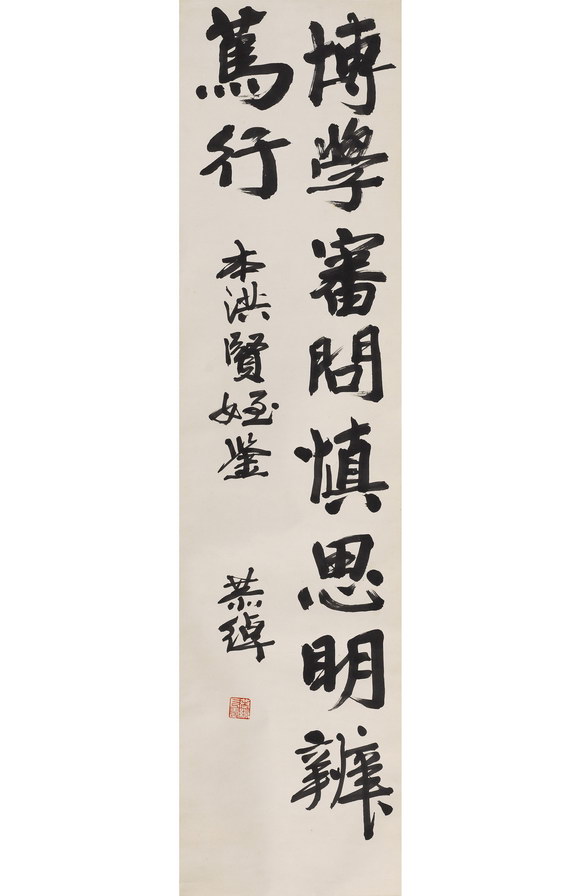 博學審問慎思明辨
篤行
本洪賢姪鉴
恭綽